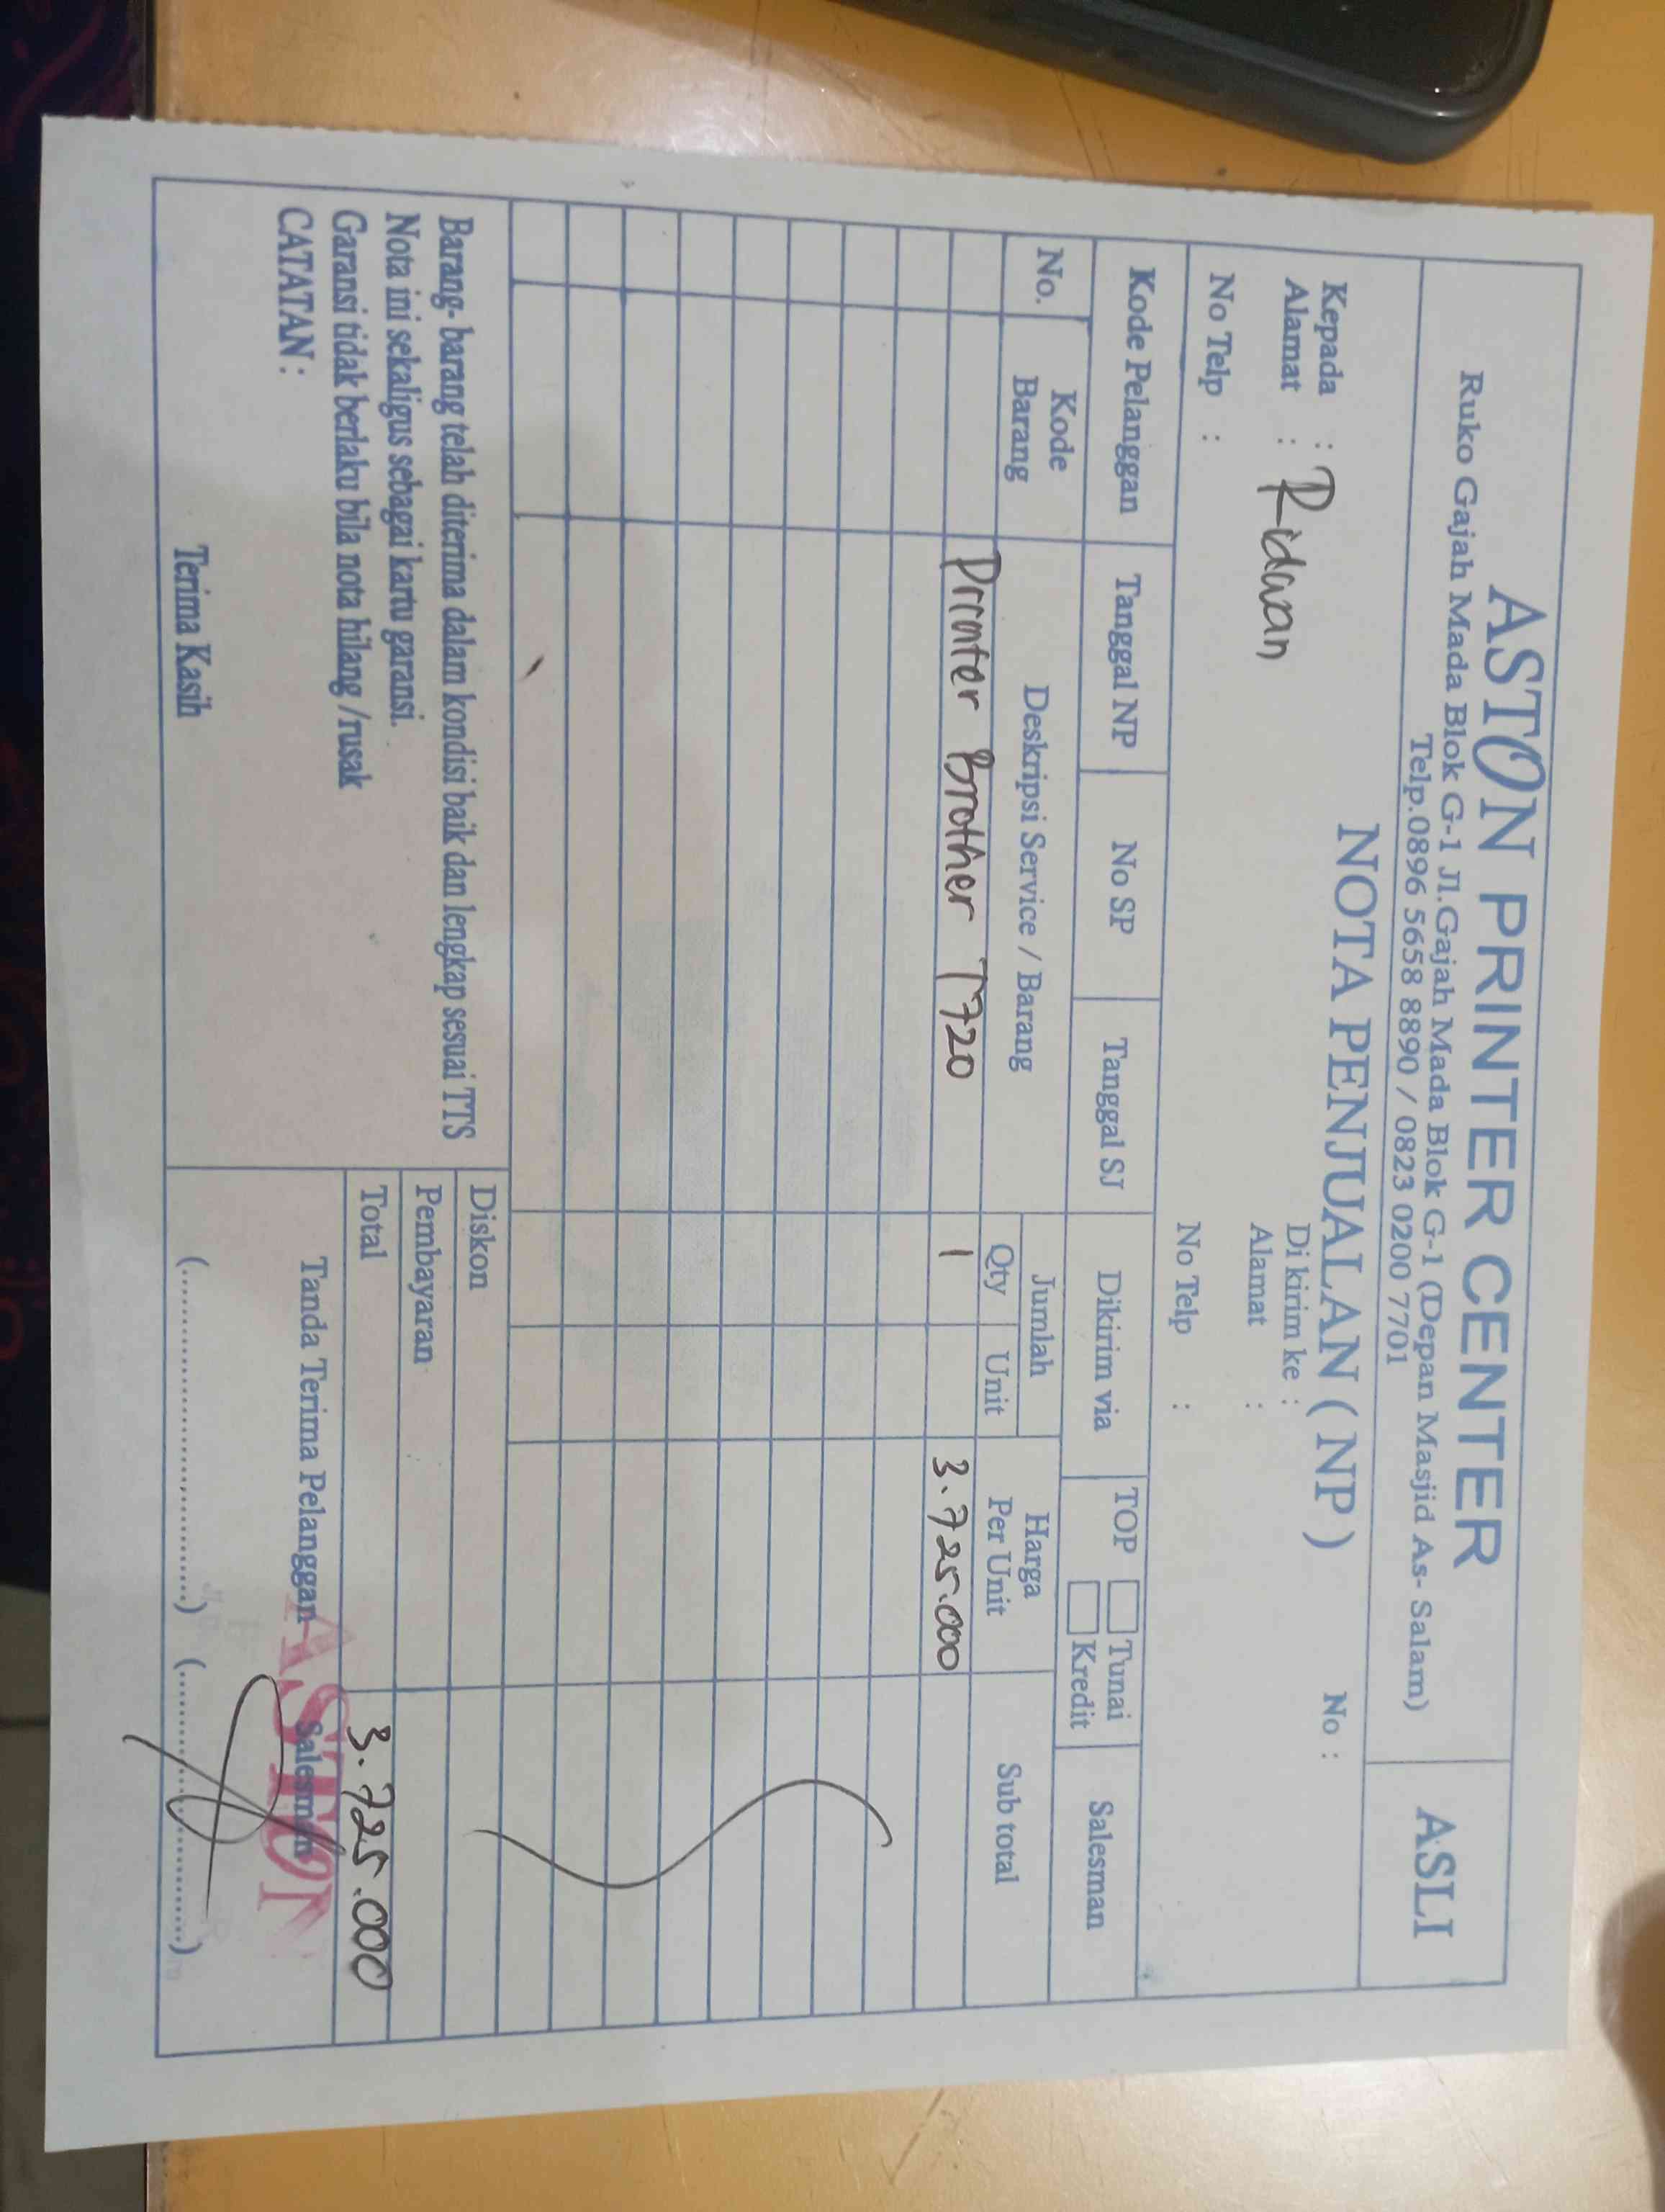 ASTON PRINTER CENTER
Ruko Gajah Mada Blok G-1 Jl.Gajah Mada Blok G-1 (Depan Masjid As- Salam)
Telp.0896 5658 8890 / 0823 0200 7701
ASLI
NOTA PENJUALAN ( NP )
No :
Kepada : Ridwan
Alamat :
No Telp :
Di kirim ke :
Alamat :
No Telp :
Kode Pelanggan Tanggal NP No SP Tanggal SJ Dikirim via TOP Tunai Kredit Salesman
No. Kode Barang Deskripsi Service / Barang Jumlah Qty Unit Harga Per Unit Sub total
Printer Brother T720 1 3.725.000
Barang- barang telah diterima dalam kondisi baik dan lengkap sesuai TTS
Nota ini sekaligus sebagai kartu garansi.
Garansi tidak berlaku bila nota hilang /rusak
CATATAN :
Terima Kasih
Diskon
Pembayaran
Total 3.725.000
Tanda Terima Pelanggan Salesman
ASTON
(..............................) (..............................)